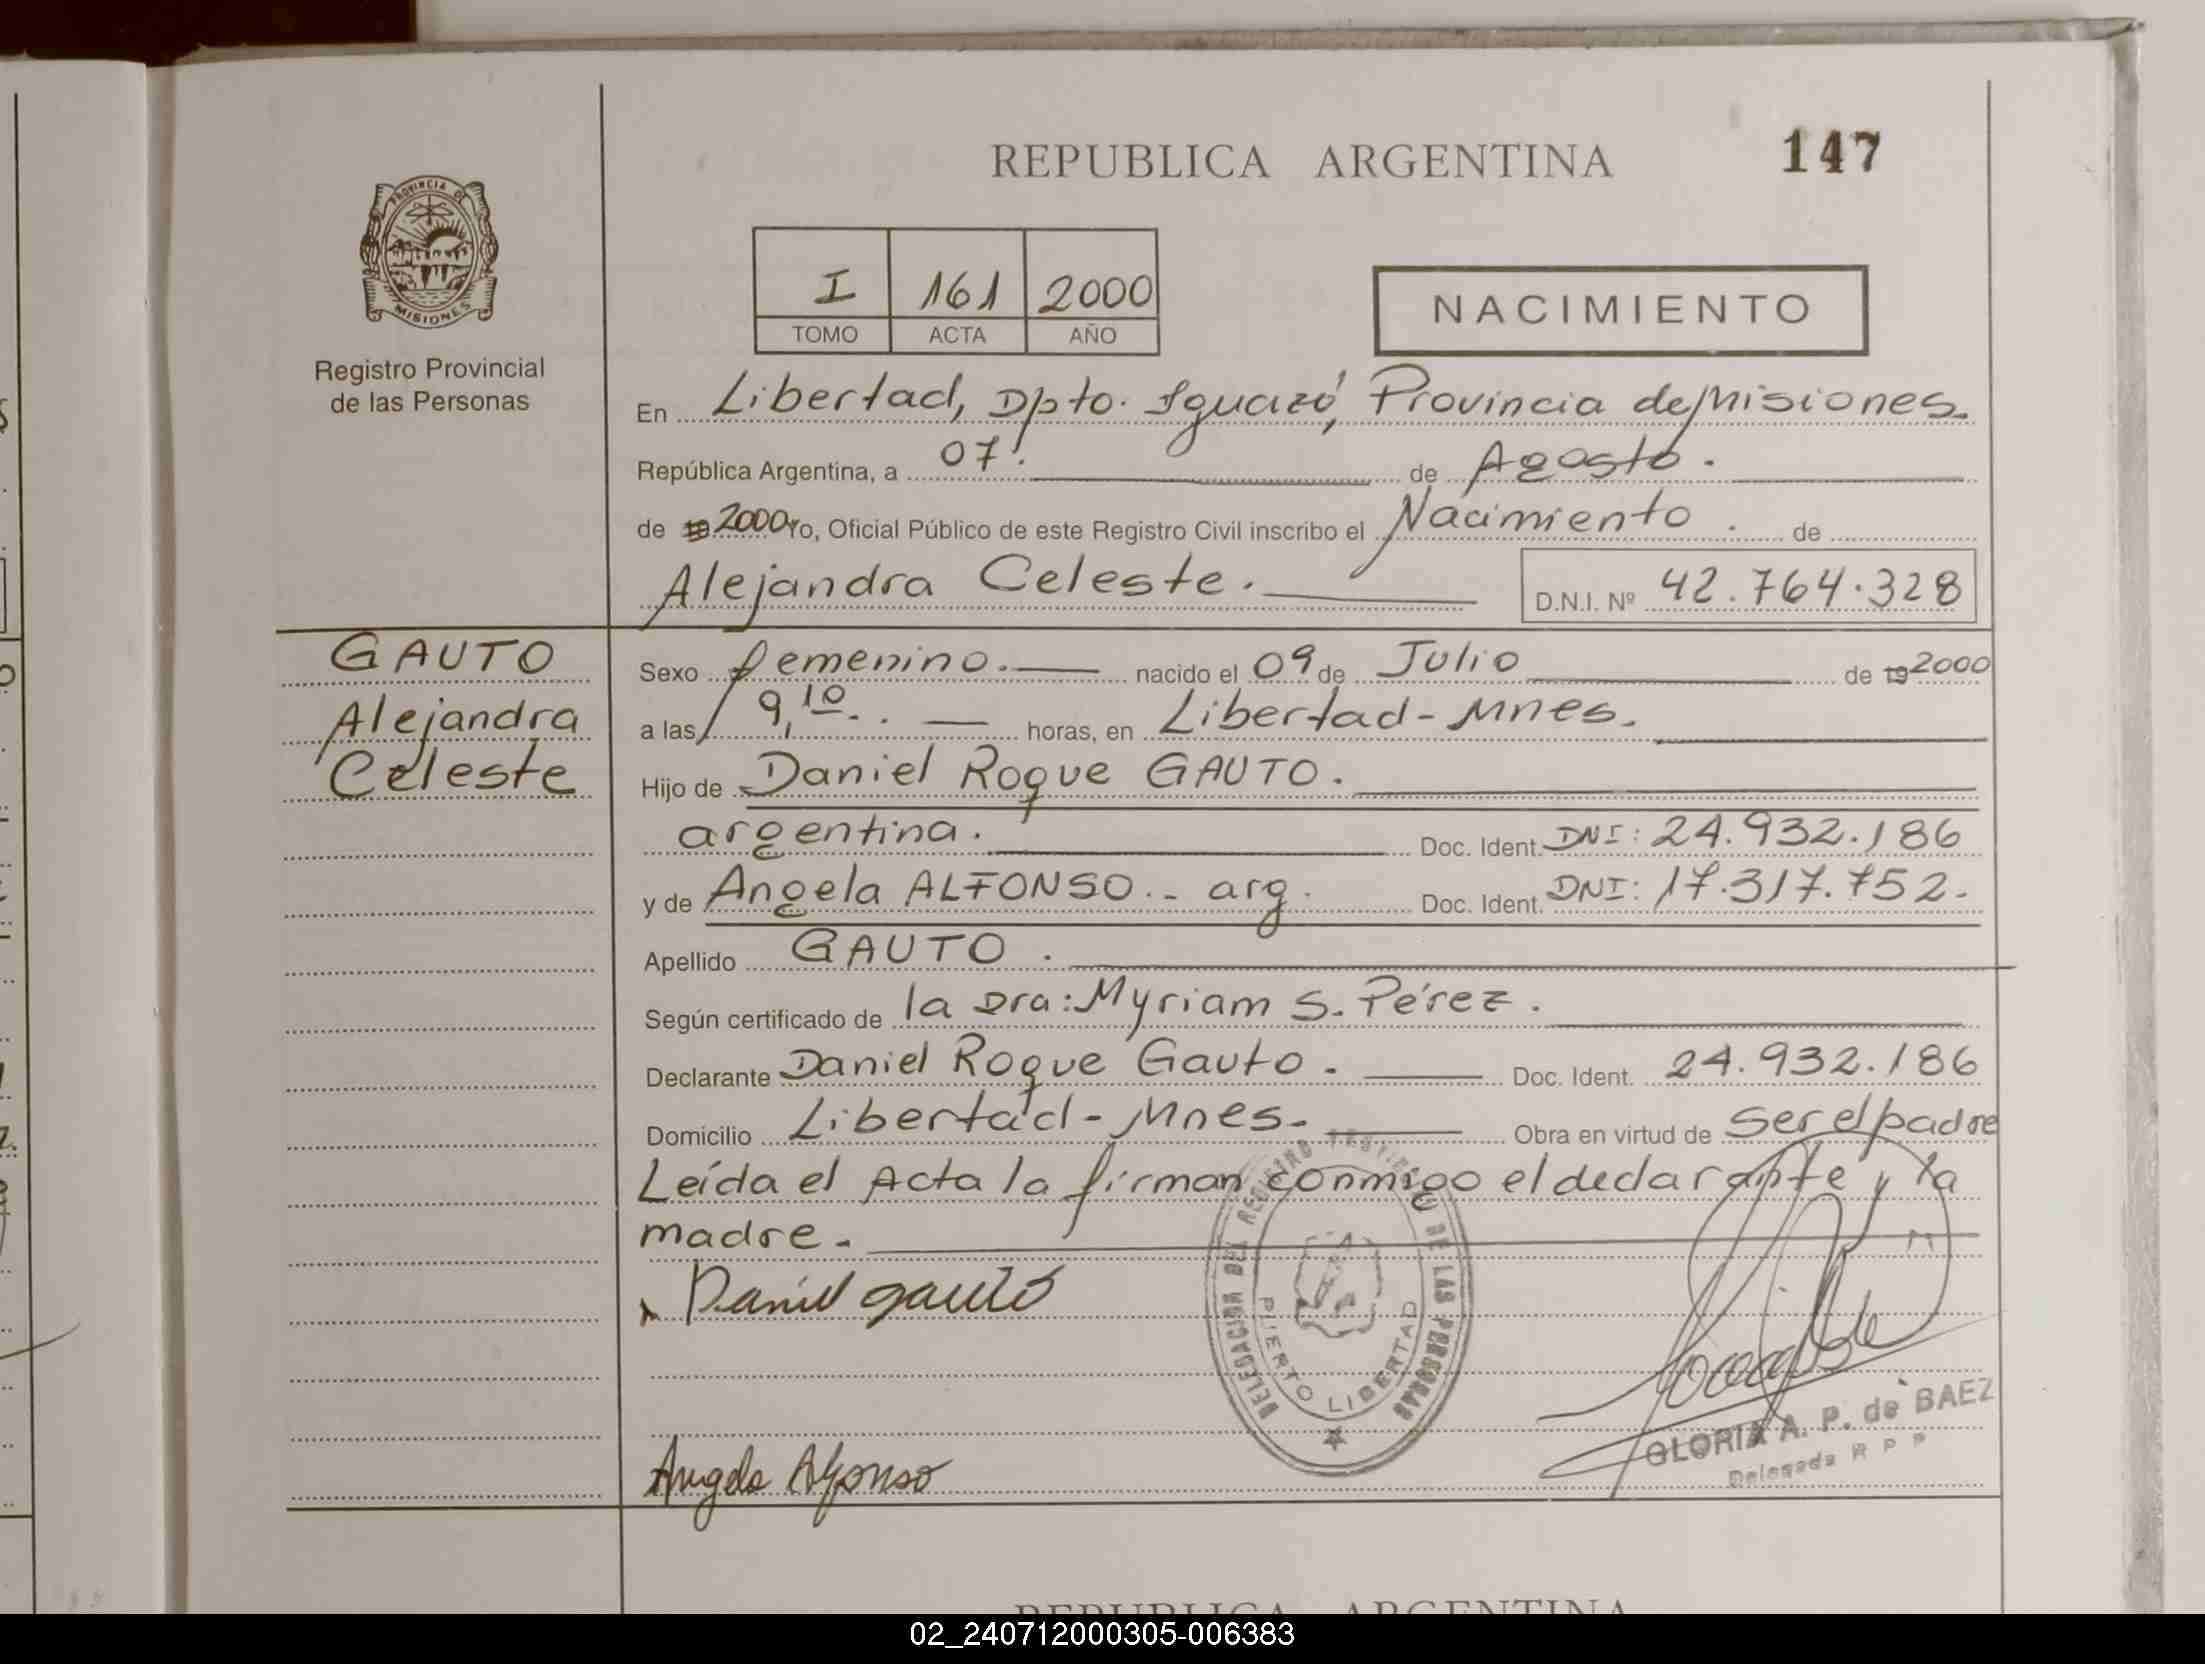 REPUBLICA ARGENTINA
147
PROVINCIA DE
MISIONES
Registro Provincial
de las Personas
I 161 2000
TOMO ACTA AÑO
NACIMIENTO
En Libertad, Dpto. Iguazú, Provincia de Misiones.
República Argentina, a 07. de Agosto.
de 19 2000 Yo, Oficial Público de este Registro Civil inscribo el Nacimiento. de
Alejandra Celeste. D.N.I. Nº 42.764.328
GAUTO
Alejandra
Celeste
Sexo femenino. nacido el 09 de Julio de 19 2000
a las 9,10. horas, en Libertad - Mnes.
Hijo de Daniel Roque GAUTO.
argentina. Doc. Ident. DNI: 24.932.186
y de Angela ALFONSO.- arg. Doc. Ident. DNI: 17.317.752.
Apellido GAUTO.
Según certificado de la Dra: Myriam S. Pérez.
Declarante Daniel Roque Gauto. Doc. Ident. 24.932.186
Domicilio Libertad - Mnes. Obra en virtud de ser el padre
Leída el Acta la firman conmigo el declarante y la
madre.-
Daniel Gauto
DELEGACION DEL REGISTRO PROVINCIAL DE LAS PERSONAS
PUERTO LIBERTAD
GLORIA A. P. de BAEZ
Delegada R P P
Angela Alfonso
REPUBLICA ARGENTINA
02_240712000305-006383